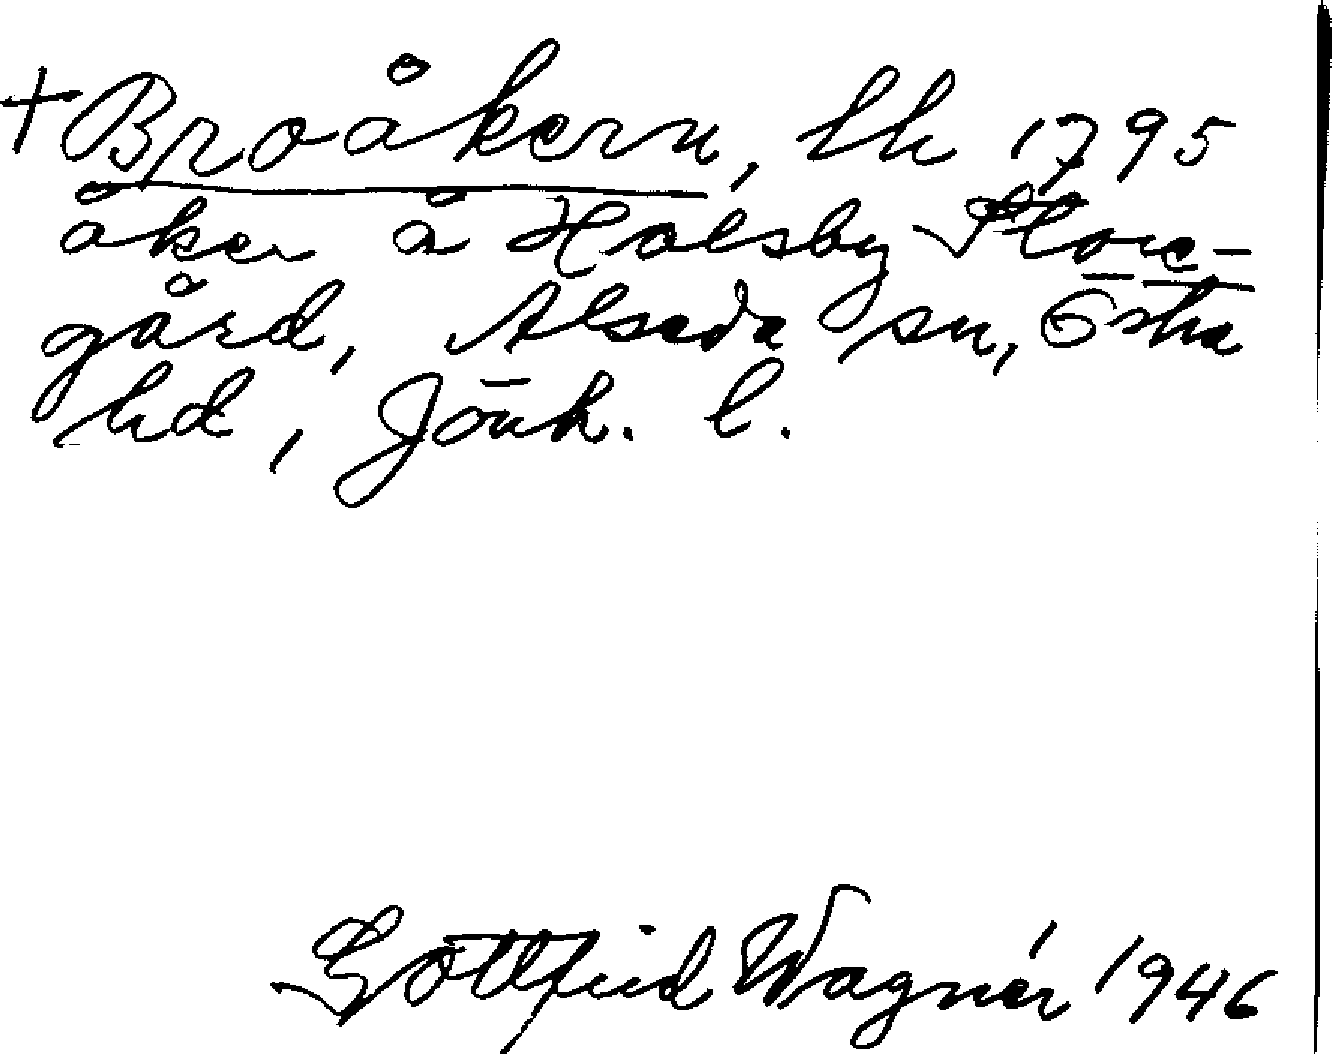 + Broåkern, lh 1795
åker å Holsby Store-
gård, Alseda sn, Östra
hd, Jönk. l.
Gottfrid Wagnér 1946